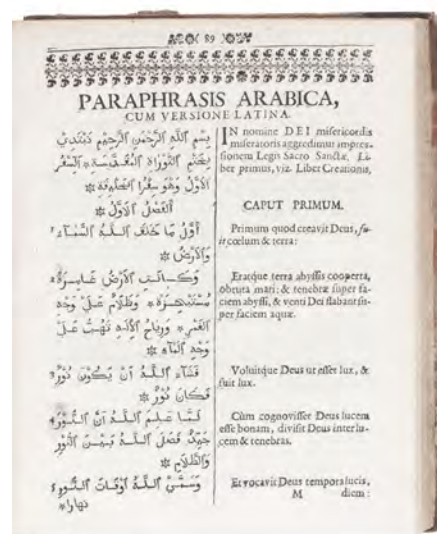 89
PARAPHRASIS ARABICA,
CUM VERSIONE LATINA.
بِسْمِ اللَّهِ الرَّحْمَنِ الرَّحِيمِ نَبْتَدِي
بِخَتْمِ التَّوْرَاةِ الْمُقَدَّسَةِ * السِّفْرُ
الْأَوَّلُ وَهُوَ سِفْرُ الْخَلِيقَةِ *
الْفَصْلُ الْأَوَّلُ *
أَوَّلُ مَا خَلَقَ اللَّهُ السَّمَآءَ
وَالْأَرْضَ *
وَكَانَتِ الْأَرْضُ غَامِرَةً
مُسْتَبْحِرَةً * وَظَلَامٌ عَلَى وَجْهِ
الْغَمْرِ * وَرِيَاحُ الْإِلَهِ تَهُبُّ عَلَى
وَجْهِ الْمَآءِ *
فَشَآءَ اللَّهُ أَنْ يَكُونَ نُورٌ
فَكَانَ نُورٌ *
لَمَّا عَلِمَ اللَّهُ أَنَّ النُّورَ
جَيِّدٌ فَصَلَ اللَّهُ بَيْنَ النُّورِ
وَالظَّلَامِ *
وَسَمَّى اللَّهُ أَوْقَاتَ النُّورِ
نهارا *
IN nomine DEI misericordis
miseratoris aggredimur impres-
sionem Legis Sacro Sanctæ. Li-
ber primus, viz. Liber Creationis,
CAPUT PRIMUM.
Primum quod creavit Deus, fu-
it cœlum & terra:
Eratque terra abyssis cooperta,
obruta mari: & tenebræ super fa-
ciem abyssi, & venti Dei flabant su-
per faciem aquæ.
Voluitque Deus ut esset lux, &
fuit lux.
Cùm cognovisset Deus lucem
esse bonam, divisit Deus inter lu-
cem & tenebras.
Et vocavit Deus tempora lucis,
M diem: